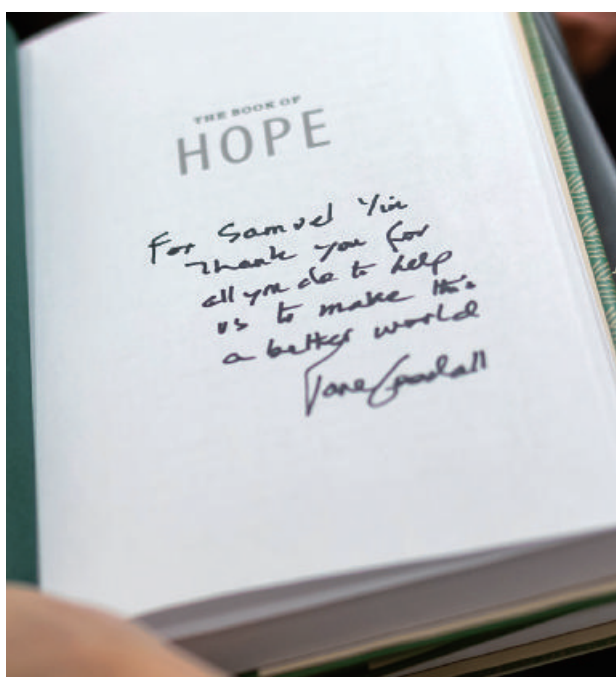 THE BOOK OF
HOPE
For Samuel Yin
Thank you for
all you do to help
us to make this
a better world
Jane Goodall